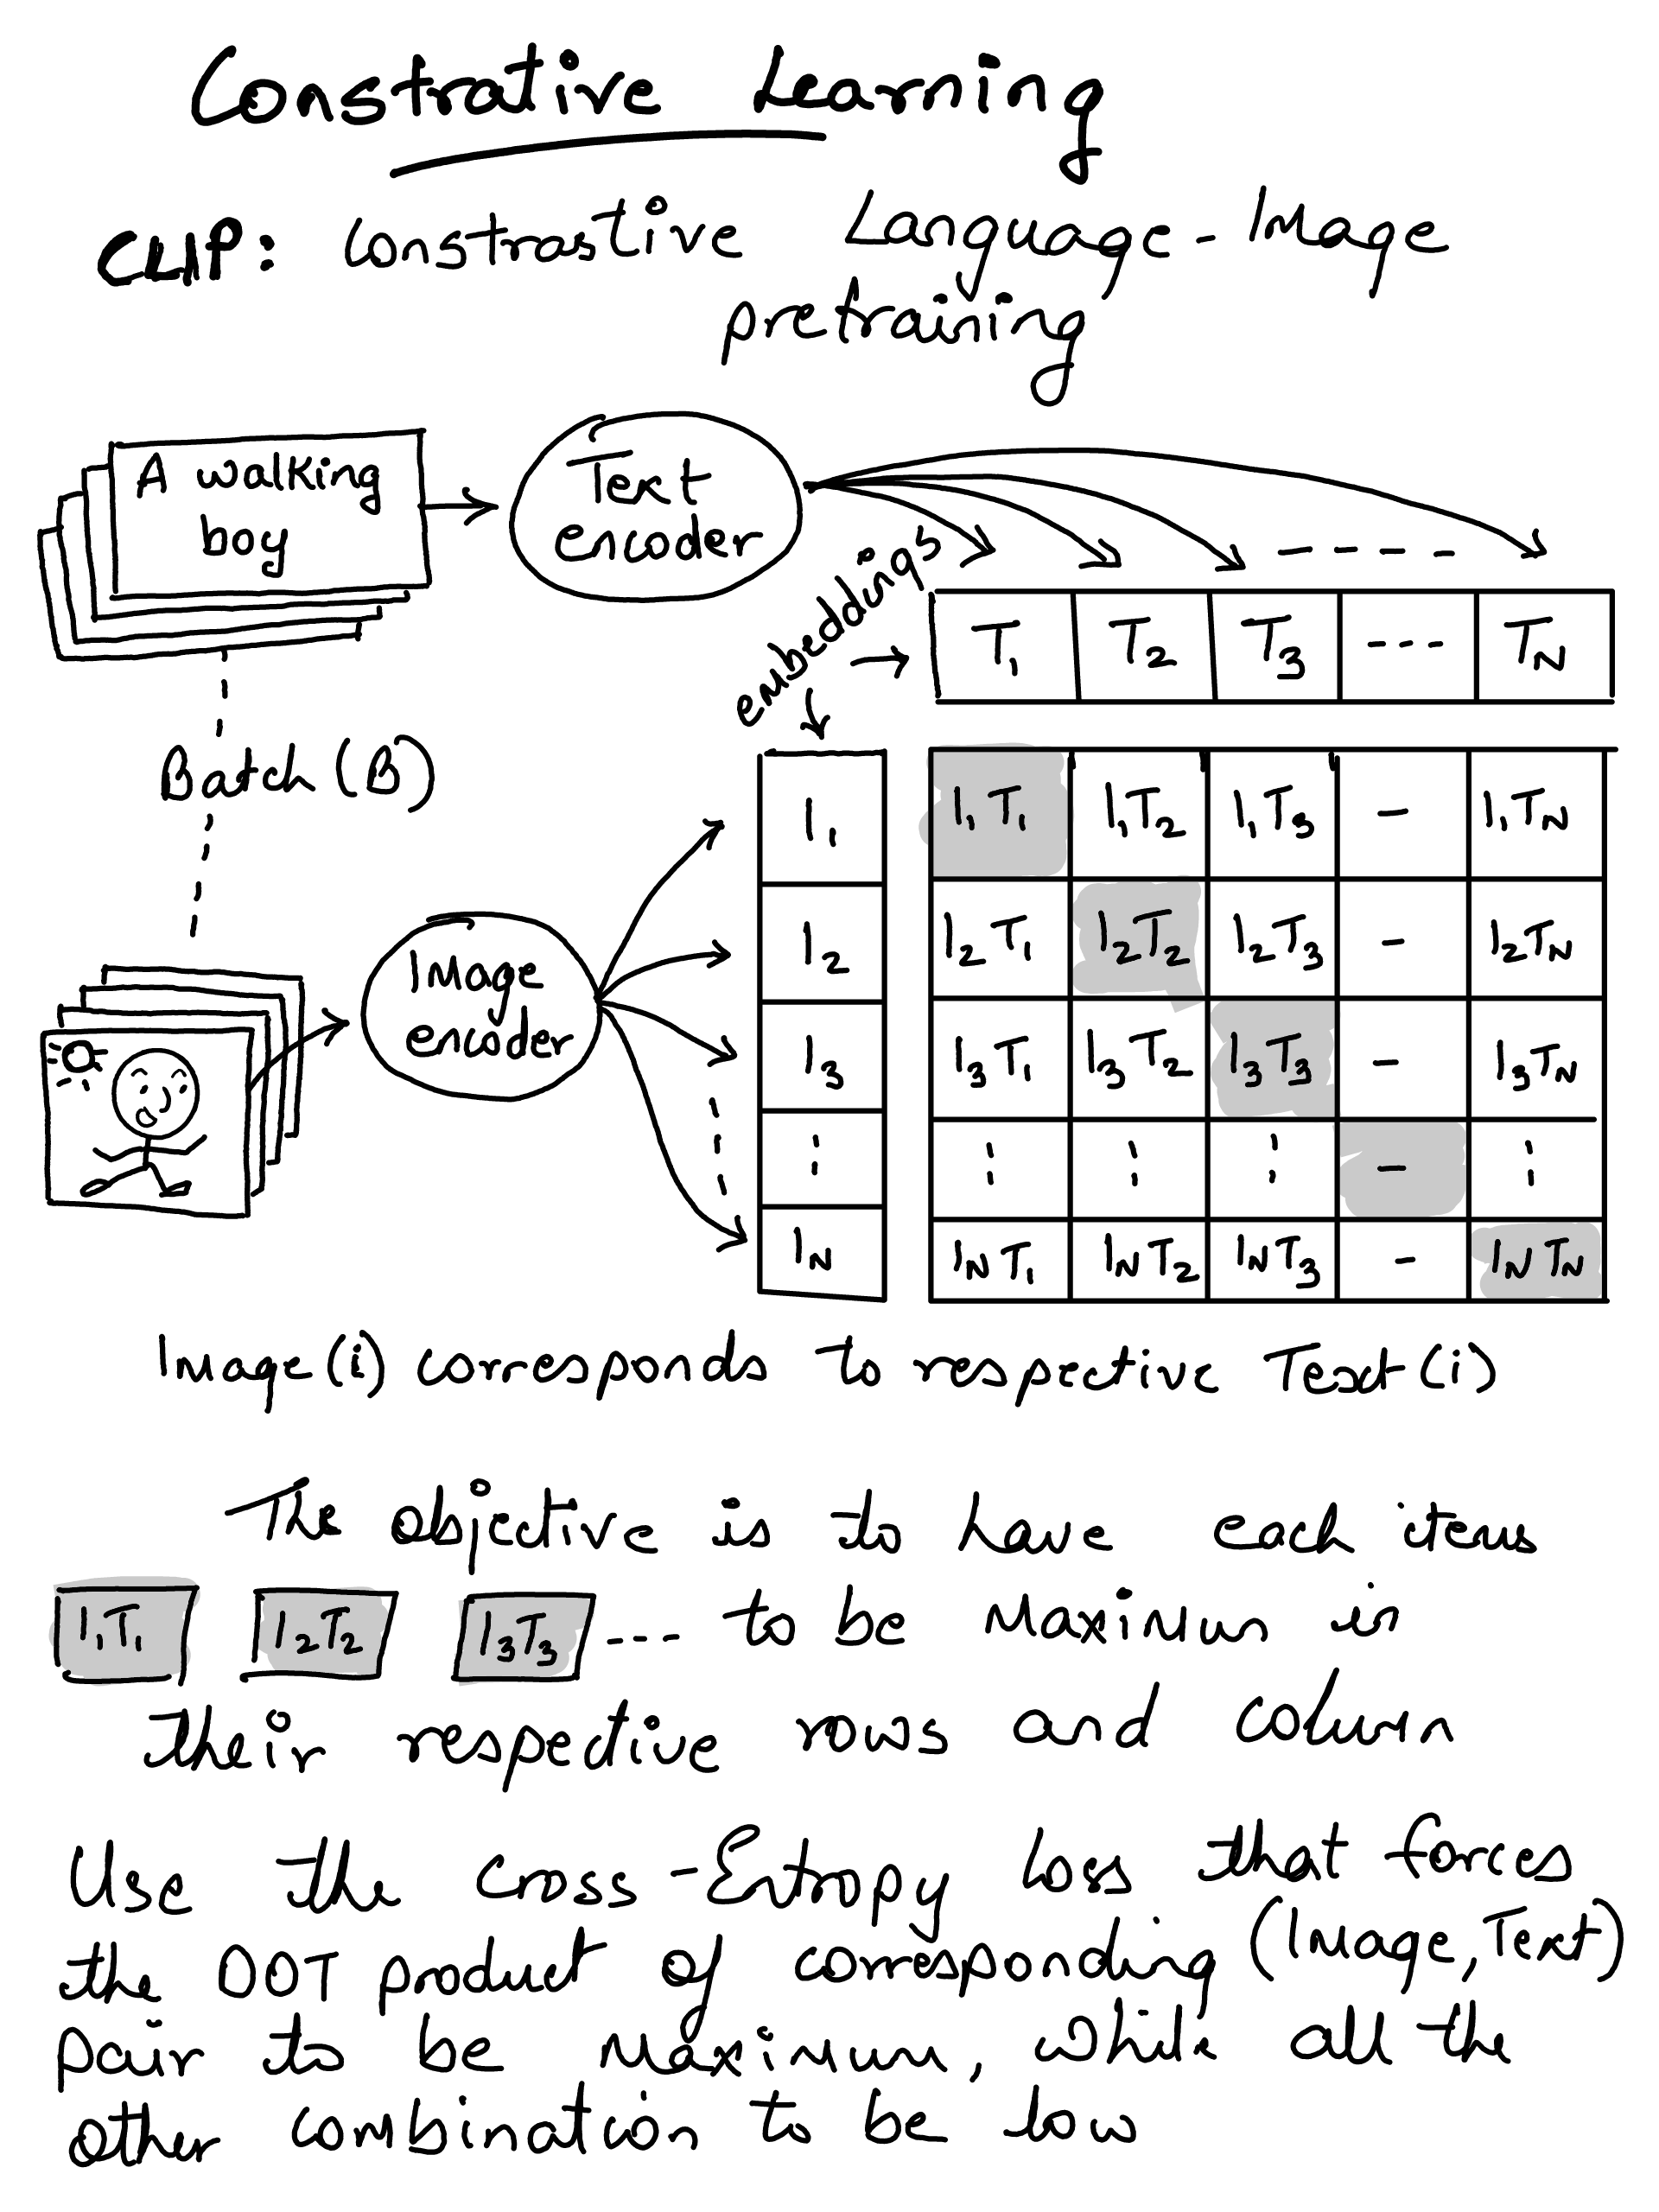 Constrative Learning
CLIP: Constrastive Language-Image
pretraining
A walking
boy
Text
encoder
embeddings
T1 T2 T3 --- TN
Batch (B)
Image
encoder
I1
I2
I3
⋮
IN
I1T1 I1T2 I1T3 - I1TN
I2T1 I2T2 I2T3 - I2TN
I3T1 I3T2 I3T3 - I3TN
⋮ ⋮ ⋮ - ⋮
INT1 INT2 INT3 - INTN
Image(i) corresponds to respective Text(i)
The objective is to have each items
I1T1 I2T2 I3T3 --- to be Maximum in
their respective rows and column
Use the Cross-Entropy loss that forces
the DOT product of corresponding (Image, Text)
pair to be Maximum, while all the
other combination to be low